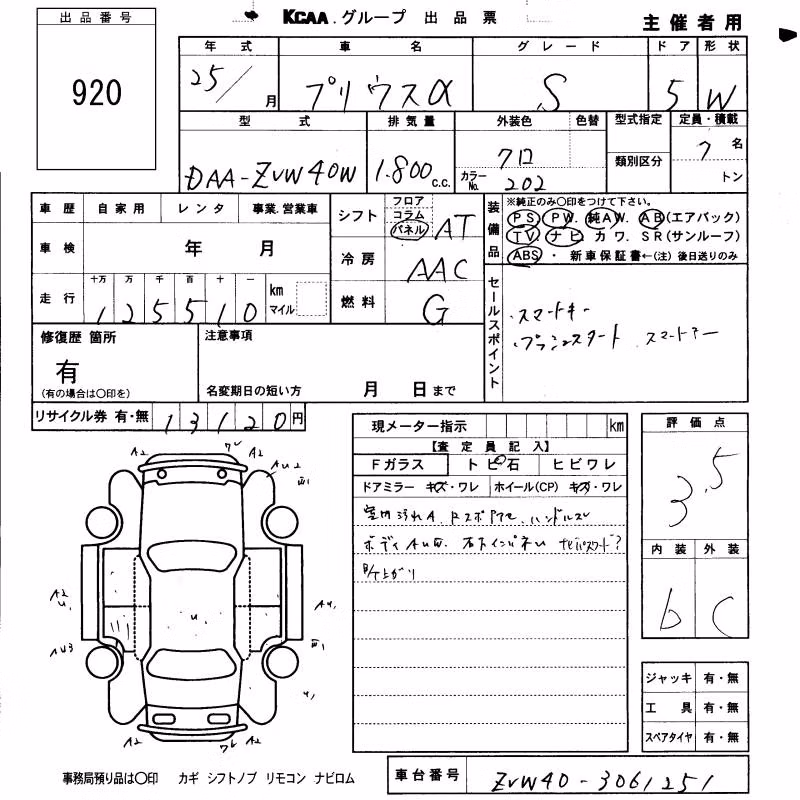 出品番号
920
KCAA.グループ 出品票
主催者用
年式 車名 グレード ドア 形状
25/ 月 プリウスα S 5 W
型式 排気量 外装色 色替 型式指定 定員・積載
類別区分
DAA-ZVW40W 1.800 c.c. クロ カラーNo. 202 7名
トン
車歴 自家用 レンタ 事業.営業車
車検 年 月
走行 十万 万 千 百 十 一
125510 km マイル
シフト フロア コラム パネル AT
冷房 AAC
燃料 G
装備品 ※純正のみ○印をつけて下さい。
PS. PW. 純AW. AB(エアバック)
TV. ナビ. カワ. SR(サンルーフ)
ABS ・ 新車保証書←(注)後日送りのみ
セールスポイント
・スマートキー
・プッシュスタート スマートキー
修復歴 箇所
有
(有の場合は○印を)
注意事項
名変期日の短い方 月 日まで
リサイクル券 有・無 13120円
現メーター指示 km
【査定員記入】
Fガラス トビ石 ヒビワレ
ドアミラー キズ・ワレ ホイール(CP) キズ・ワレ
室内汚れA. ハンドルスレ
ボディAUW. ナビパスワード?
下上がり
評価点
3.5
内装 外装
b C
ジャッキ 有・無
工具 有・無
スペアタイヤ 有・無
A2 ワレ A2
AU2
A2
U1
AU3
U1
A2 ワレ A2
事務局預り品は○印 カギ シフトノブ リモコン ナビロム
車台番号 ZVW40-3061251